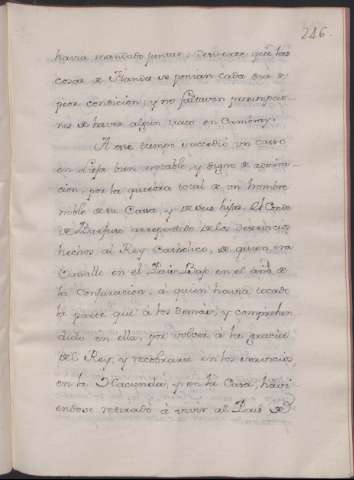 246.
havia mandado juntar, deviesse que las
cosas de Flandes se ponian cada dia de
peor condicion, y no faltavan presumpcio-
nes de haver algun trato en Cambray.
A este tiempo sucedió un casso
en Liexa bien notable, y digno de admira-
cion, por la quiebra total de un hombre
noble de su Cassa, y de sus hijos. El Conde
de arrepentido de los deservicios
hechos al Rey Catholico, de quien era
Vassallo en el Pais Bajo en el año de
la Conjuracion, á quien havia tocado
la parte que á los demas, y comprehen-
dido en ella, por volver á la gracia
del Rey, y recobrarse en los
en la Hacienda, y en la Cassa, havi
endose retirado á vivir al Pais de